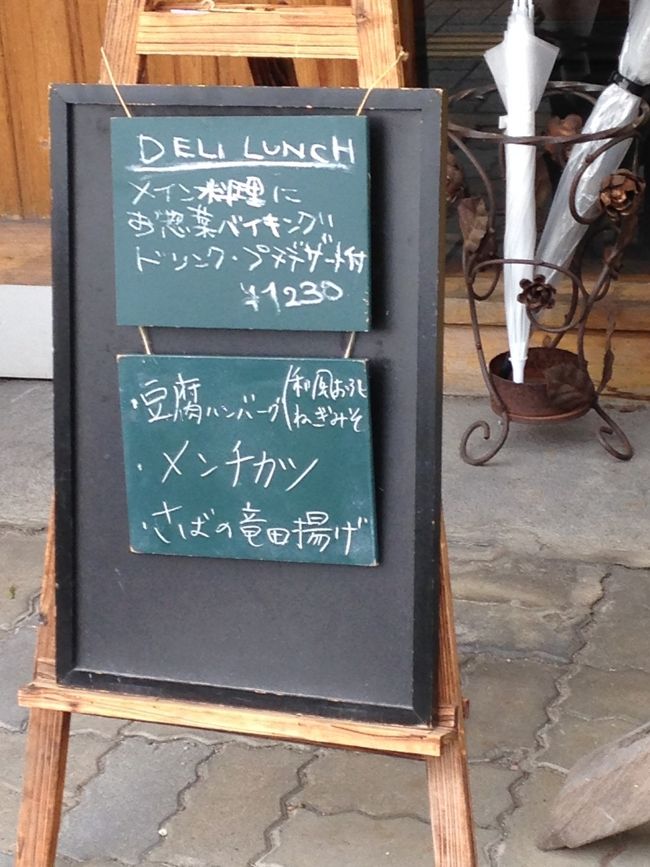 DELI LUNCH
メイン料理に
お惣菜バイキング!!
ドリンク・プチデザート付
¥1230
・豆腐ハンバーグ(和風おろし
ねぎみそ
・メンチカツ
・さばの竜田揚げ